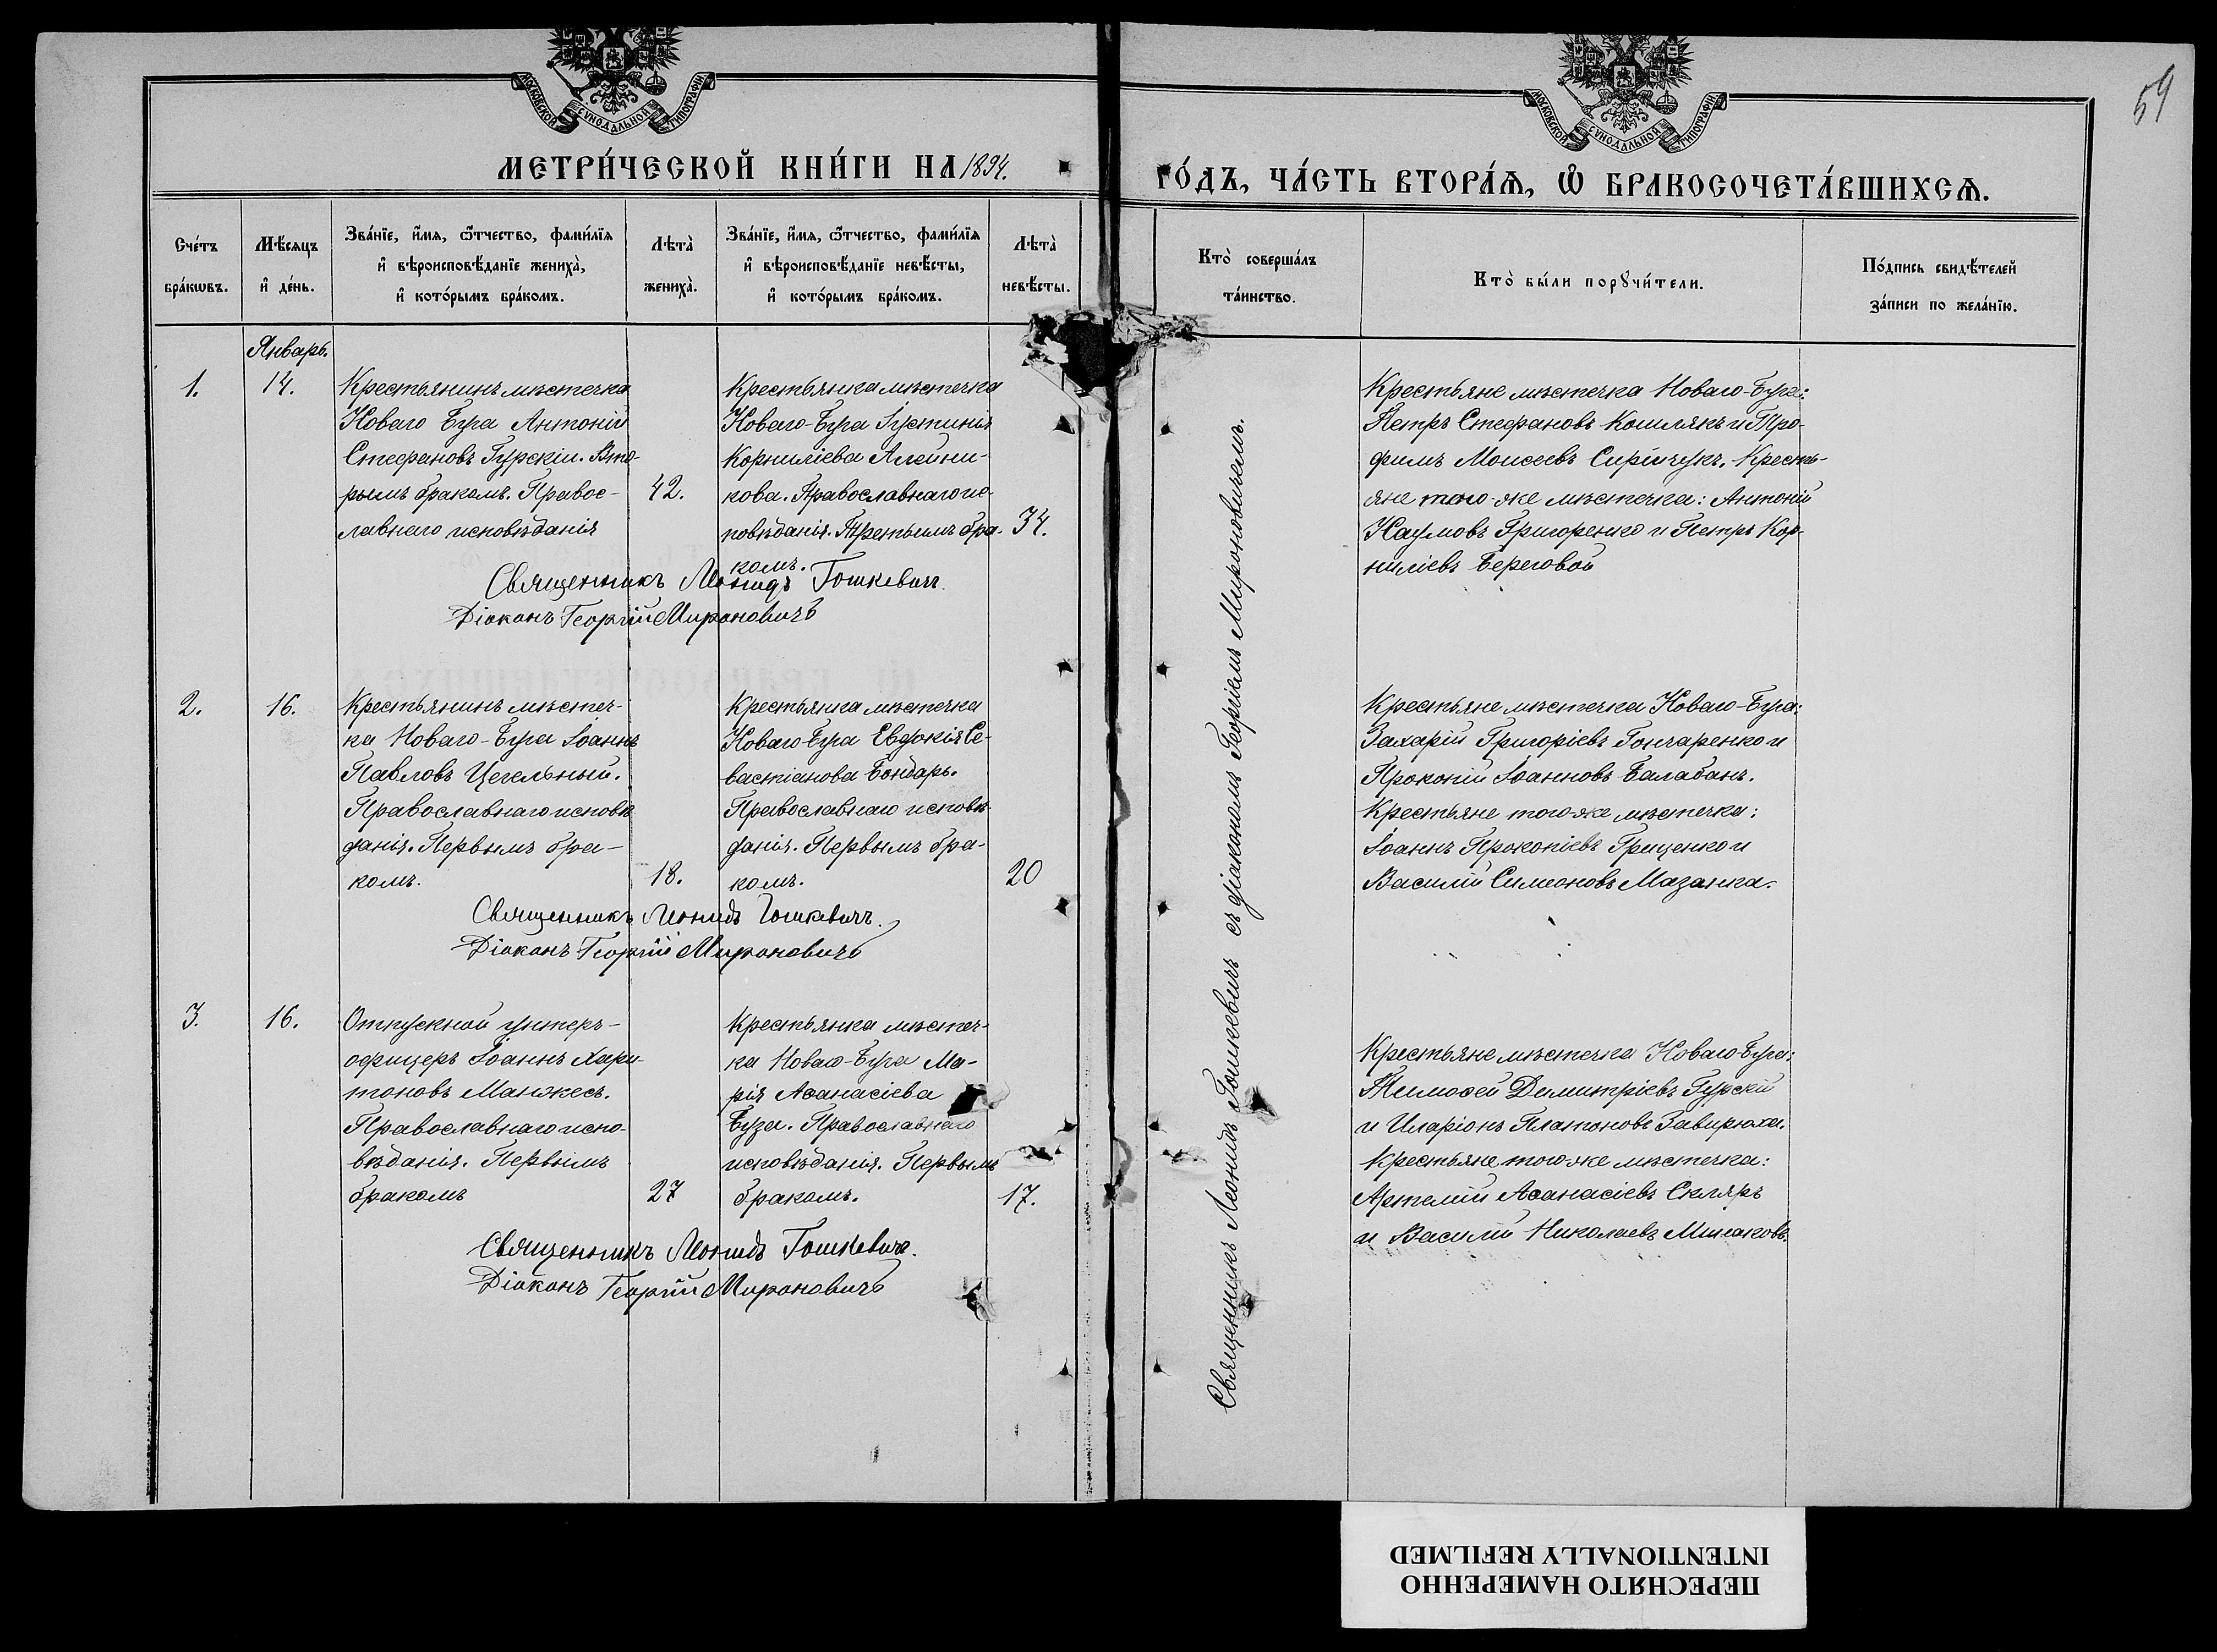 МОСКОВСКОЙ СУНОДАЛЬНОЙ ТИПОГРАФІИ
МОСКОВСКОЙ СУНОДАЛЬНОЙ ТИПОГРАФІИ
59
МЕТРИ́ЧЕСКОЙ КНИ́ГИ НА 1894.
ГО́ДЪ, ЧА́СТЬ ВТОРА́Ѧ, Ѽ БРАКОСОЧЕТА́ВШИХСѦ.
Сче́тъ
бра́кѡвъ.
Мѣ́сѧцъ
и҆ де́нь.
Зва́нїе, и҆́мѧ, ѻ҆́тчество, фами́лїѧ
и҆ вѣроисповѣ́данїе жениха̀,
и҆ кото́рымъ бра́комъ.
Лѣта̀
жениха̀.
Зва́нїе, и҆́мѧ, ѻ҆́тчество, фами́лїѧ
и҆ вѣроисповѣ́данїе невѣ́сты,
и҆ кото́рымъ бра́комъ.
Лѣта̀
невѣ́сты.
Кто̀ соверша́лъ
та́инство.
Кто̀ бы́ли порꙋчи́тели.
По́дпись свидѣ́телей
за́писи по жела́нїю.
Январь.
1.
14.
Крестьянинъ мѣстечка
Новаго Буга Антоній
Стефановъ Гурскій. Вто-
рымъ бракомъ. Правос-
лавнаго исповѣданія
42.
Крестьянка мѣстечка
Новаго-Буга Іустинія
Корниліева Алейни-
кова. Православнаго ис-
повѣданія. Третьимъ бра-
комъ.
34.
Крестьяне мѣстечка Новаго-Буга:
Петръ Стефановъ Кошлякъ и Тро-
фимъ Моисеевъ Сирімчукъ. Кресть-
яне того-же мѣстечка: Антоній
Наумовъ Григоренко и Петръ Кор-
ниліевъ Береговой
Священникъ Леонидъ Гошкевичъ.
Діаконъ Георгій Мироновичъ
2.
16.
Крестьянинъ мѣстеч-
ка Новаго-Буга Іоаннъ
Павловъ Цегельный.
Православнаго исповѣ
данія. Первымъ бра-
комъ.
18.
Крестьянка мѣстечка
Новаго-Буга Евдокія Се-
вастіанова Бондарь.
Православнаго исповѣ-
данія. Первымъ бра-
комъ.
20
Крестьяне мѣстечка Новаго-Буга:
Захарій Григоріевъ Гончаренко и
Прокопій Іоанновъ Балабанъ.
Крестьяне того-же мѣстечка:
Іоаннъ Прокопіевъ Гриценко и
Василій Симеоновъ Мазанка.
Священникъ Леонидъ Гошкевичъ.
Діаконъ Георгій Мироновичъ
3.
16.
Отпускной унтеръ-
офицеръ Іоаннъ Хари-
тоновъ Манжесъ.
Православнаго испо-
вѣданія. Первымъ
бракомъ
27
Крестьянка мѣстеч-
ка Новаго-Буга Ма-
рія Аѳанасіева
Буза. Православнаго
исповѣданія. Первымъ
бракомъ.
17.
Крестьяне мѣстечка Новаго-Буга:
Тимоѳей Димитріевъ Гурскій
и Иларіонъ Платоновъ Завирюха.
Крестьяне того-же мѣстечка:
Артемій Аѳанасіевъ Скляръ
и Василій Николаевъ
Священникъ Леонидъ Гошкевичъ.
Діаконъ Георгій Мироновичъ
Священникъ Леонидъ Гошкевичъ съ діакономъ Георгіемъ Мироновичемъ.
ПЕРЕСНЯТО НАМЕРЕННО
INTENTIONALLY REFILMED